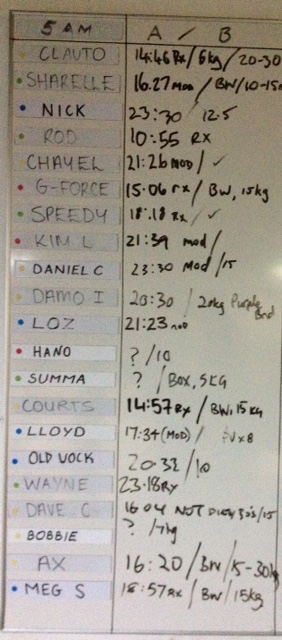 5 AM A / B
CLAUTO 14:46 Rx / 6kg / 20-30
SHARELLE 16.27 mod / BW / 10-15
NICK 23:30 / 12.5
ROD 10:55 RX
CHAYEL 21:26 MOD / ✓
G-FORCE 15:06 rx / BW, 15kg
SPEEDY 18:18 Rx / ✓
KIM L 21:39 mod /
DANIEL C 23:30 Mod / 15
DAMO I 20:30 / 20kg Purple Bnd
LOZ 21:23 mod
HANO ? / 10
SUMMA ? / BOX, 5KG
COURTS 14:57 Rx / BW, 15 KG
LLOYD 17:34 (MOD) / x 8
OLD VOCK 20.32 / 10
WAYNE 23.18 RX
DAVE C 16 04 NOT 30's / 15
BOBBIE ? / 7kg
AX 16:20 / BW / 15-30kg
MEG S 18:57 Rx / BW / 15kg